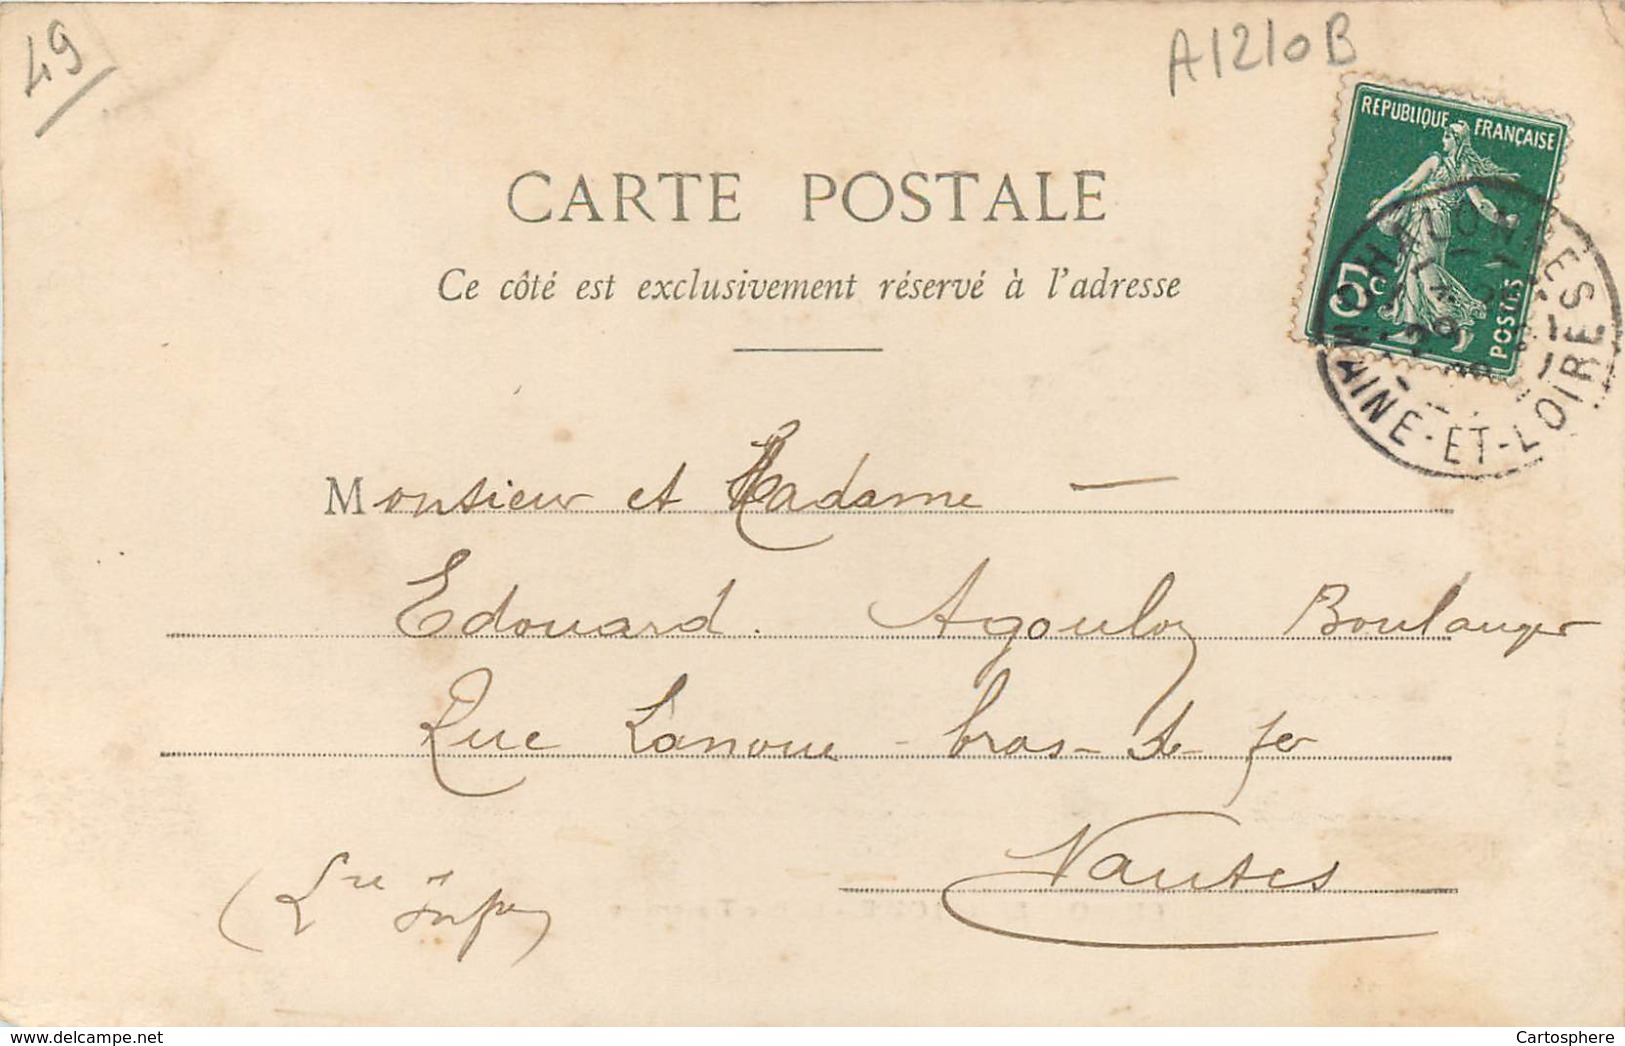 49
A1210B
REPUBLIQUE FRANÇAISE
5c
POSTES
CARTE POSTALE
MAINE-ET-LOIRE
Ce côté est exclusivement réservé à l'adresse
Monsieur et Madame —
Edouard. Agoulon Boulanger
Rue Lanoue - bras-de-fer
Nantes
(Lre Infre)
www.delcampe.net
Cartosphere